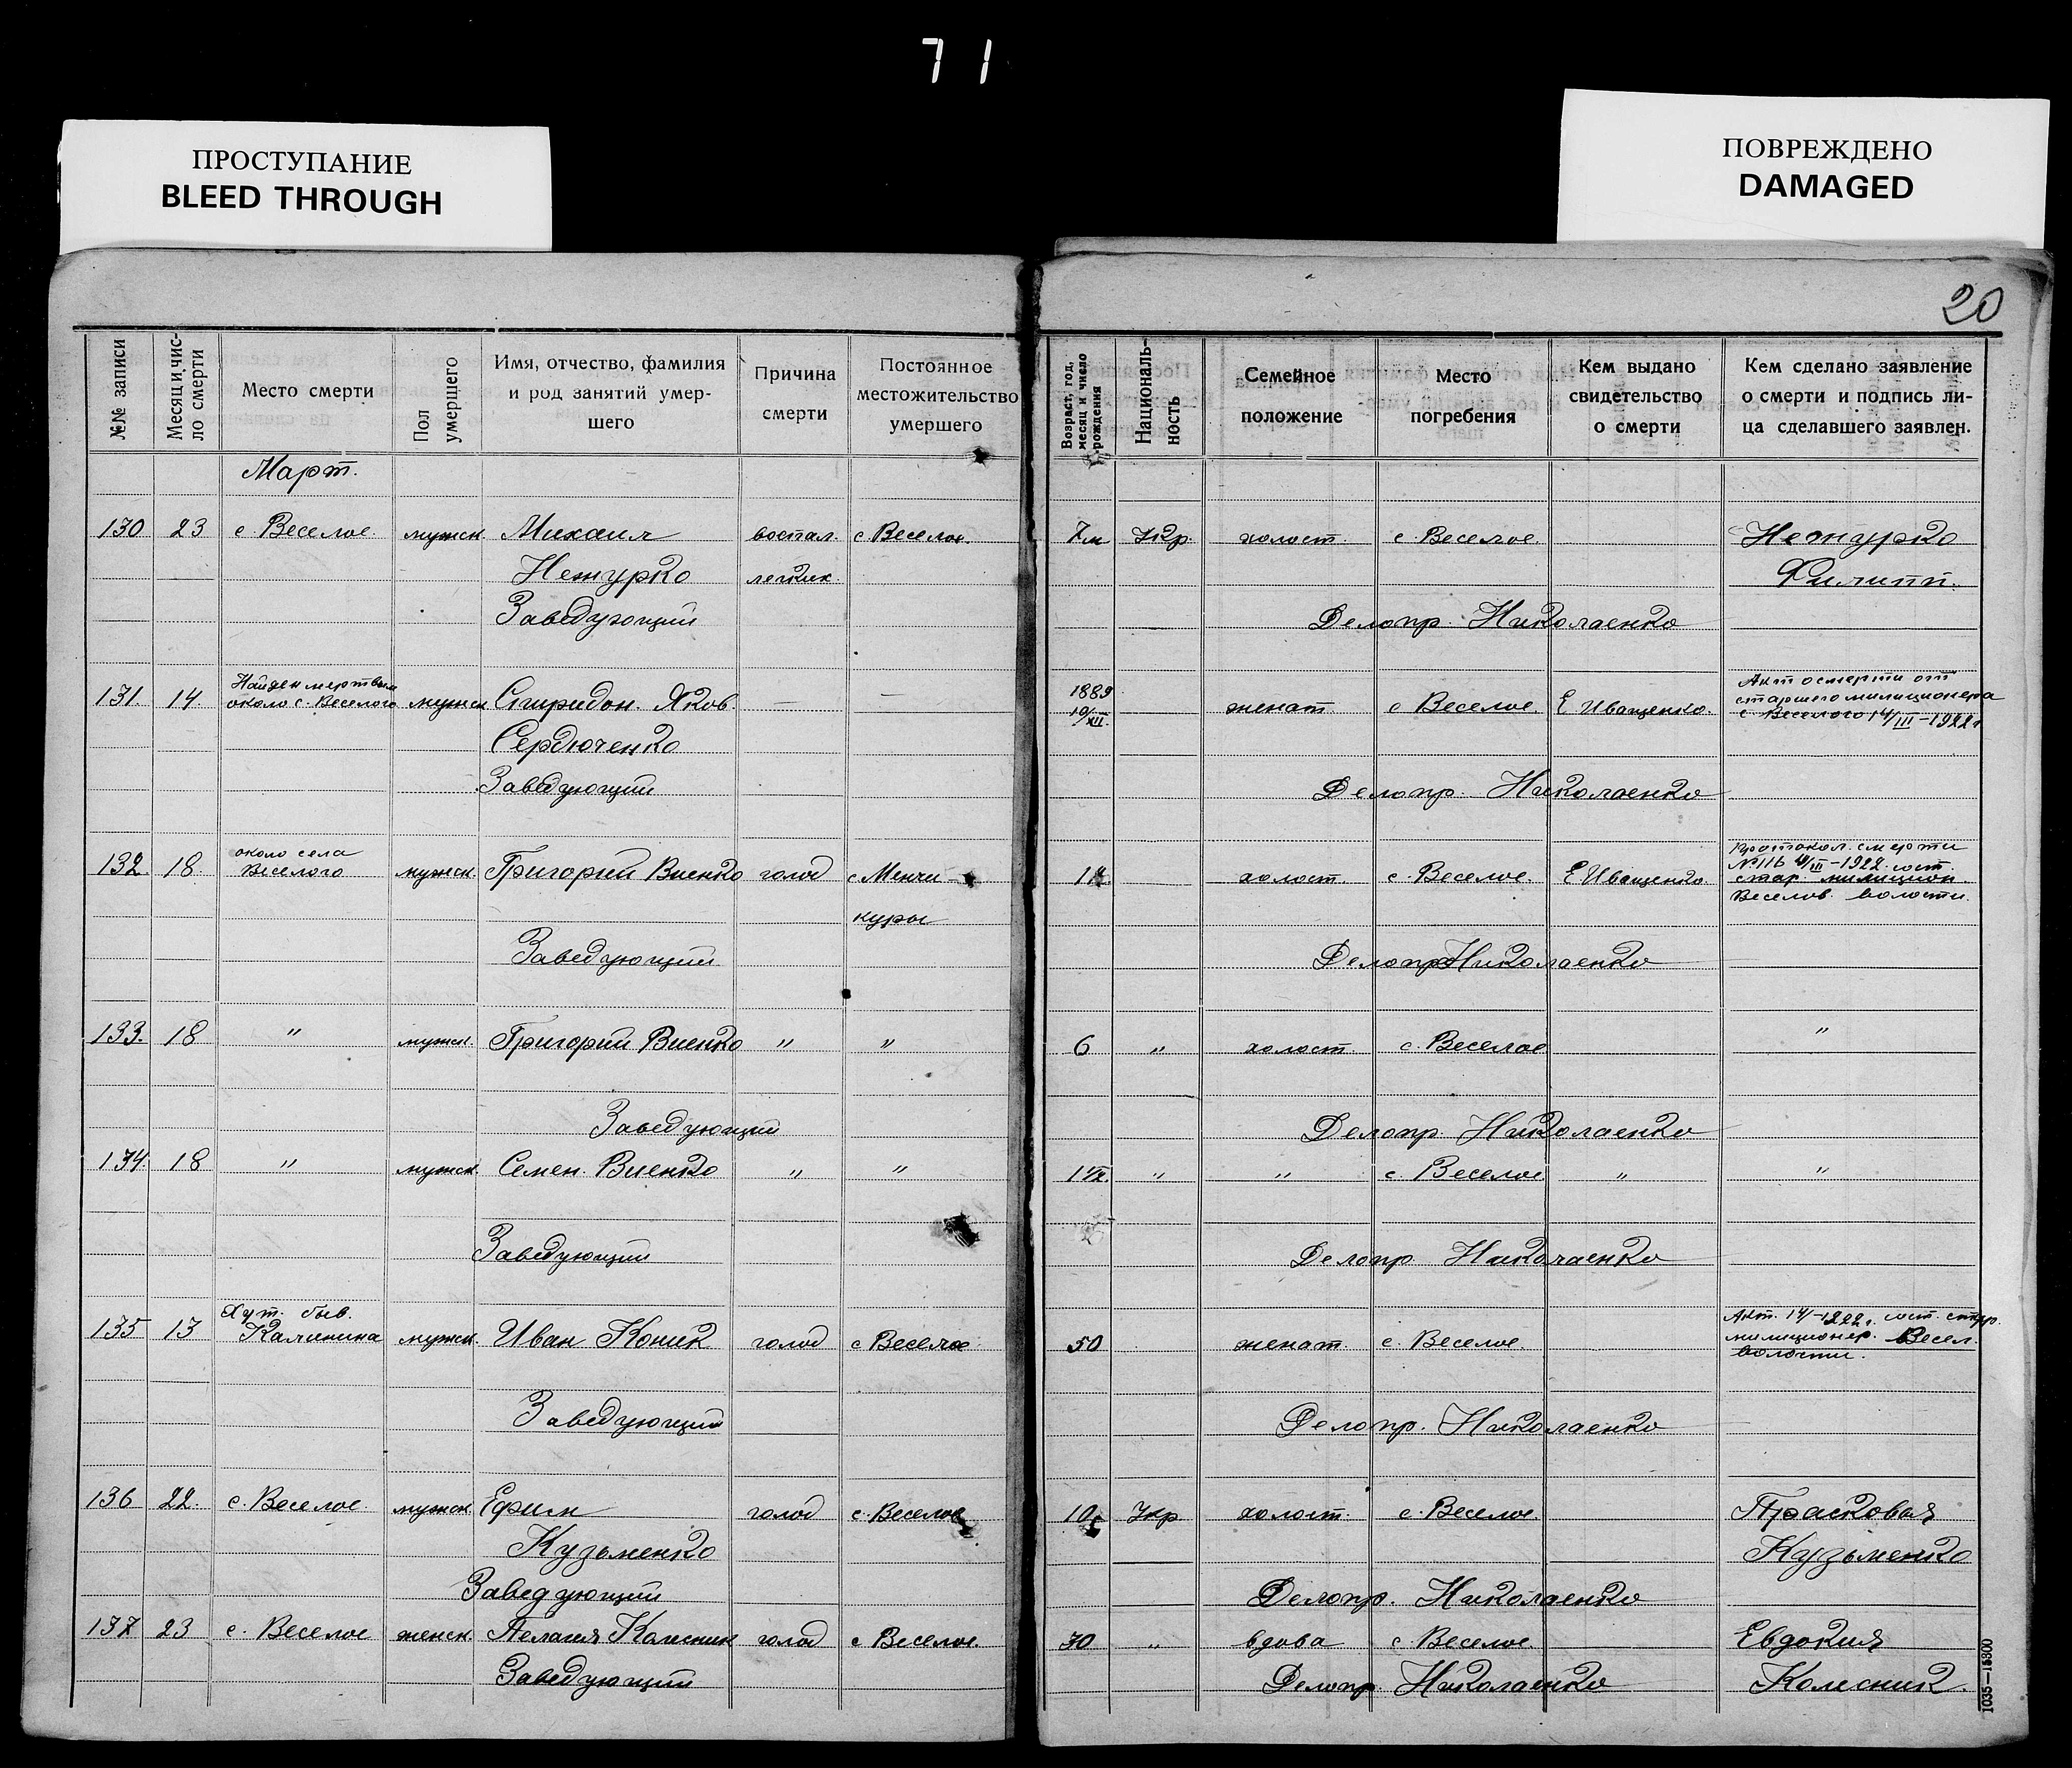 71
ПРОСТУПАНИЕ
BLEED THROUGH
ПОВРЕЖДЕНО
DAMAGED
20
№№ записи
Месяц и чис-
ло смерти
Место смерти
Пол
умерщего
Имя, отчество, фамилия
и род занятий умер-
шего
Причина
смерти
Постоянное
местожительство
умершего
Возраст, год,
месяц и число
рождения
Националь-
ность
Семейное
положение
Место
погребения
Кем выдано
свидетельство
о смерти
Кем сделано заявление
о смерти и подпись ли-
ца сделавшего заявлен.
Март.
130 23 с. Веселое. мужск. Михаил воспал. с Веселое. 7м Укр. холост. с Веселое. Нежурко
Нежурко легких. Филипп.
Заведующий Делопр. Николаенко
Найден мертвым 1889 Акт о смерти от
131. 14. около с. Веселого мужск Спиридон. Яков. — — 10/XII. женат. с Веселое. Е Иващенко. старшего милиционера
с. Веселого 14/III-1922 г
Сердюченко
Заведующий Делопр. Николаенко
около села Протокол. смерти
132. 18. Веселого мужск. Григорий Виенко голод с Менчи- холост. с. Веселое. Е Иващенко. №116 -1922. сост.
куры стар. милицион.
Веселов. волости.
Заведующий Делопр Николаенко
133. 18 " мужск. Григорий Виенко " " 6 " холост. с. Веселое "
Заведующий Делопр. Николаенко
134. 18 " мужск. Семен. Виенко " " " " с. Веселое " "
Заведующий Делопр. Николаенко
Хут. быв. Акт. 14/-1922 г. сост. стар.
135 13 Калинина мужск. Иван Коник голод с Веселое. 50 женат. с. Веселое. милиционер. Весел.
волости.
Заведующий Делопр. Николаенко
136 22. с. Веселое. мужск Ефим голод с. Веселое 10 Укр холост. с. Веселое Прасковья
Кузьменко Кузьменко
Заведующий Делопр. Николаенко
137 23 с. Веселое женск. Пелагея Колесник голод с Веселое. 30 " вдова с. Веселое Евдокия
Заведующий Делопр Николаенко Колесник.
1035—15800